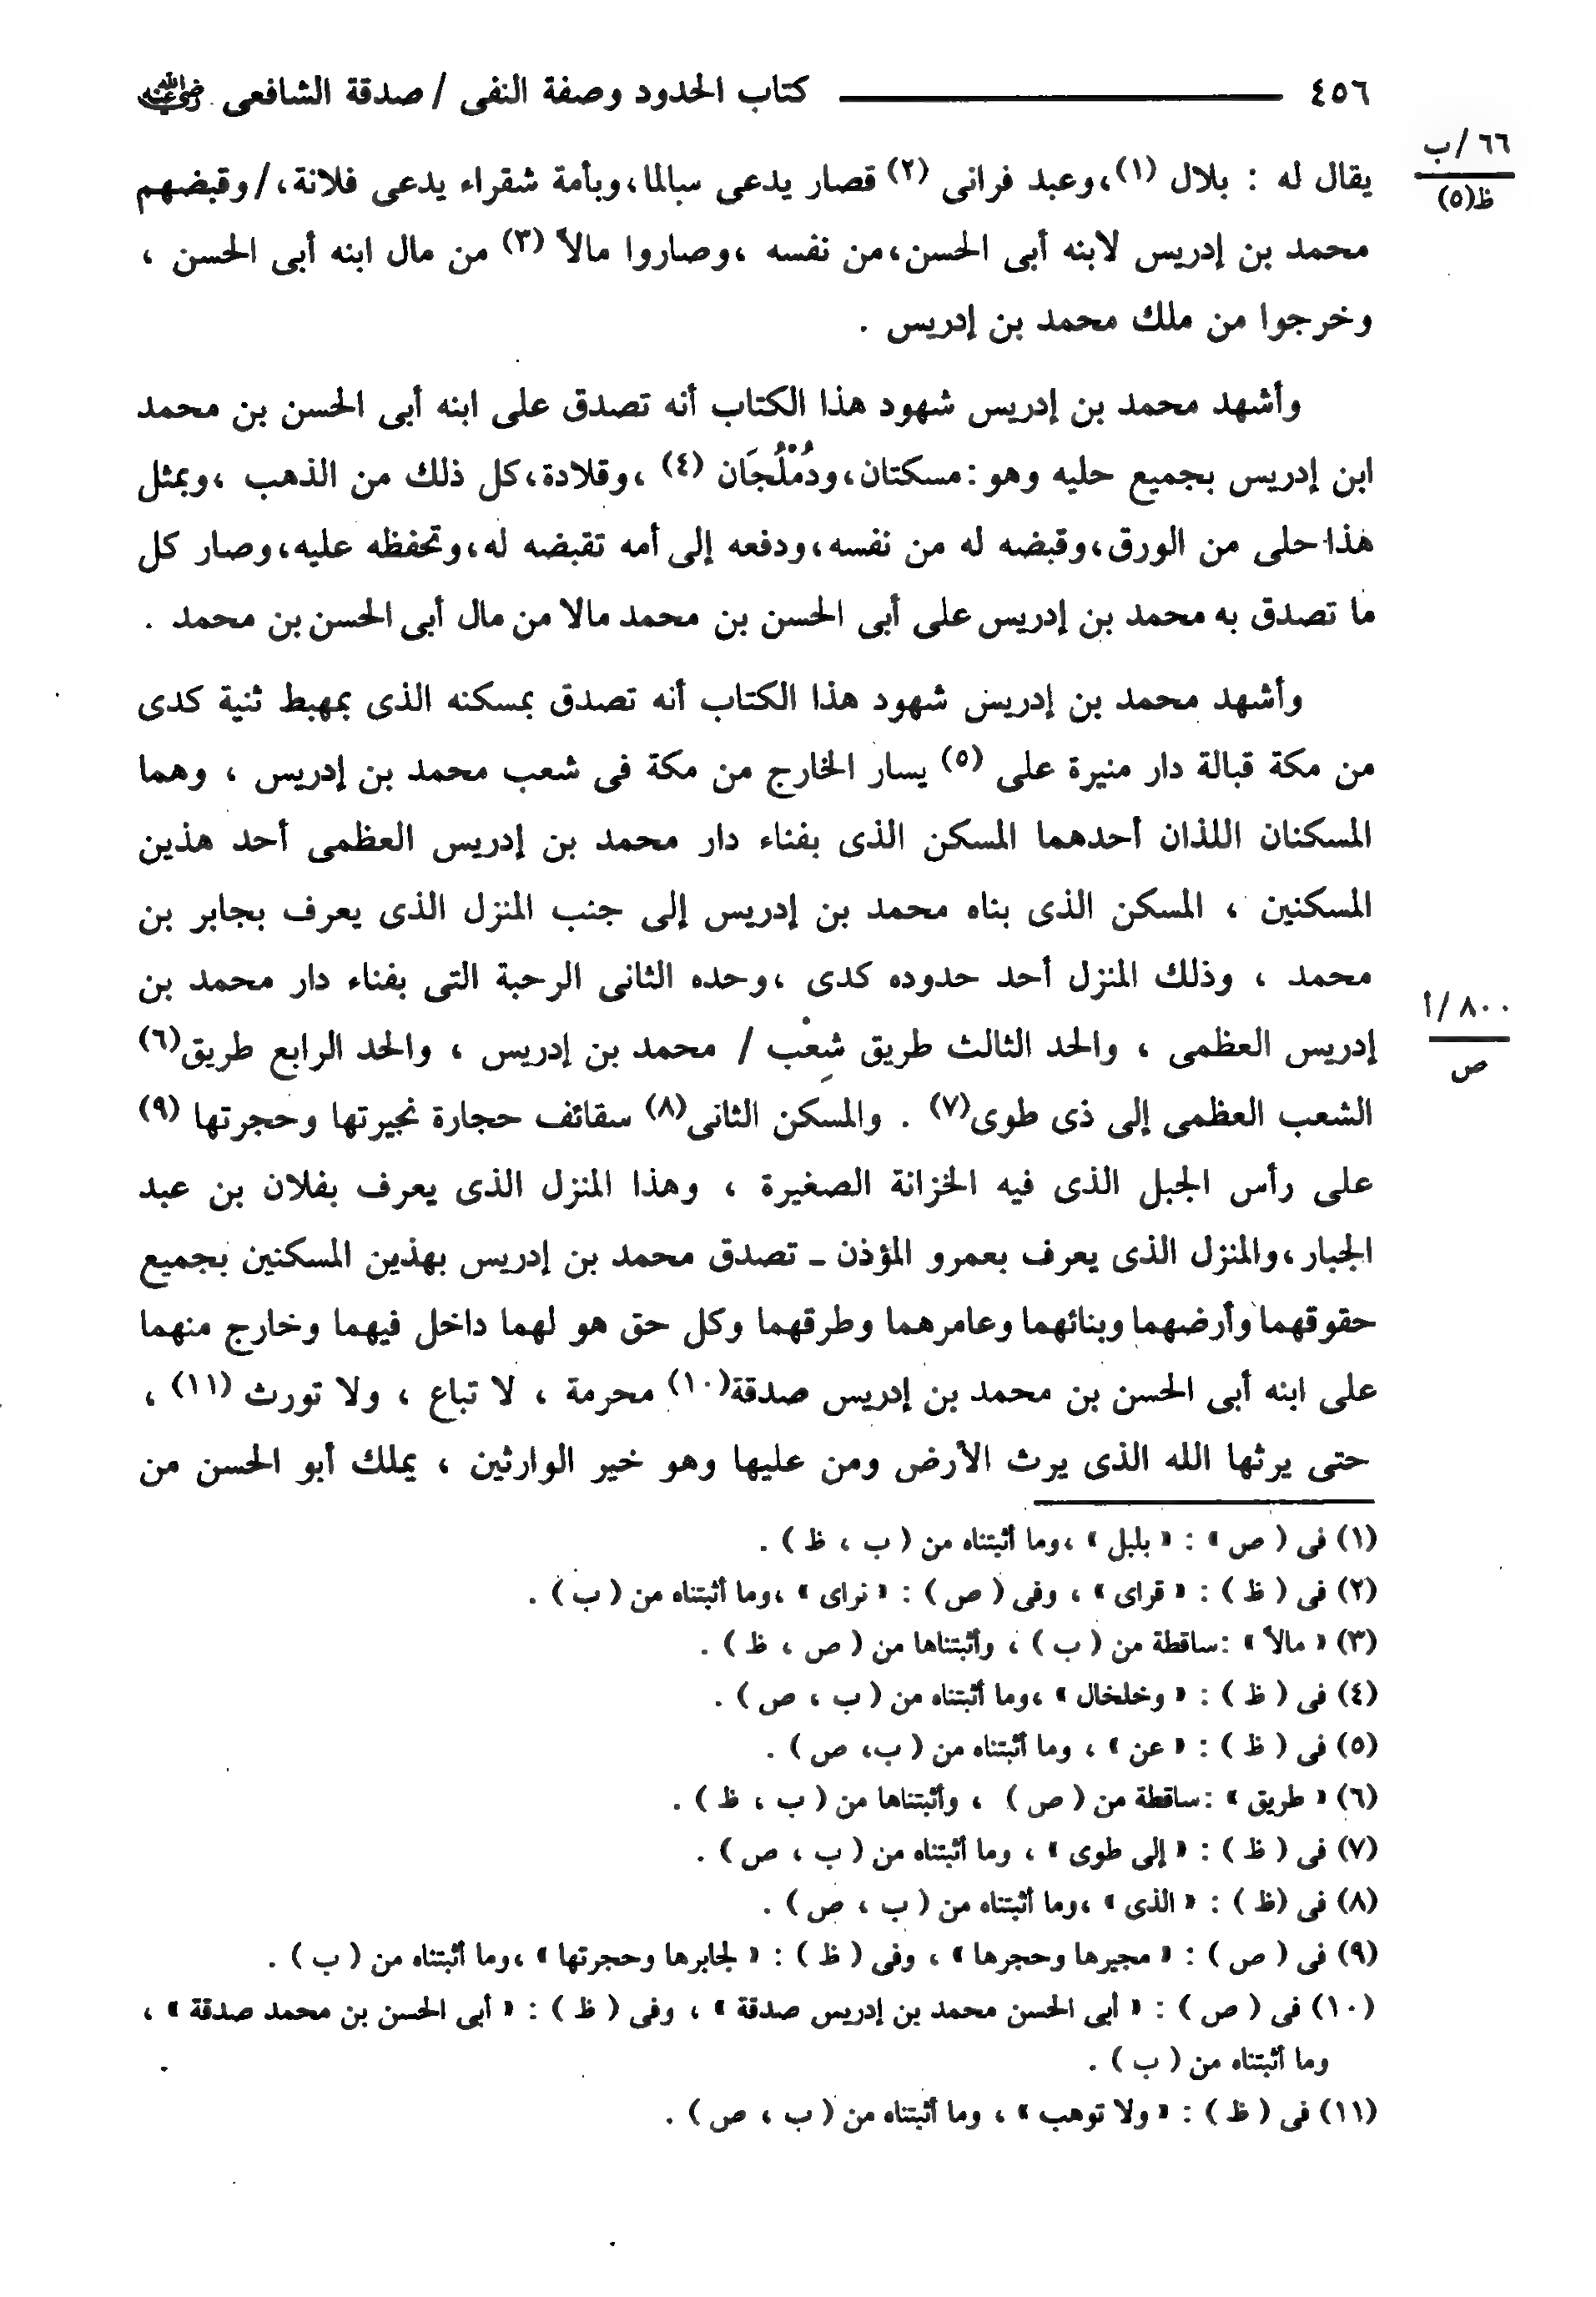 ٤٥٦ كتاب الحدود وصفة النفى / صدقة الشافعى رضي الله عنه
٦٦ /ب
ظ(٥)
يقال له : بلال (١)،وعبد فرانى (٢) قصار يدعى سبالما،وبأمة شقراء يدعى فلانة،/وقبضهم
محمد بن إدريس لابنه أبى الحسن،من نفسه ،وصاروا مالاً (٣) من مال ابنه أبى الحسن ،
وخرجوا من ملك محمد بن إدريس .
وأشهد محمد بن إدريس شهود هذا الكتاب أنه تصدق على ابنه أبى الحسن بن محمد
ابن إدريس بجميع حليه وهو :مسكتان،ودُمْلُجَان (٤) ،وقلادة،كل ذلك من الذهب ،وبمثل
هذا حلى من الورق،وقبضه له من نفسه،ودفعه إلى أمه تقبضه له،وتحفظه عليه،وصار كل
ما تصدق به محمد بن إدريس على أبى الحسن بن محمد مالا من مال أبى الحسن بن محمد .
وأشهد محمد بن إدريس شهود هذا الكتاب أنه تصدق بمسكنه الذى بمهبط ثنية كدى
من مكة قبالة دار منيرة على (٥) يسار الخارج من مكة فى شعب محمد بن إدريس ، وهما
المسكنان اللذان أحدهما المسكن الذى بفناء دار محمد بن إدريس العظمى أحد هذين
المسكنين ، المسكن الذى بناه محمد بن إدريس إلى جنب المنزل الذى يعرف بجابر بن
محمد ، وذلك المنزل أحد حدوده كدى ،وحده الثانى الرحبة التى بفناء دار محمد بن
٨٠٠ /أ
ص
إدريس العظمى ، والحد الثالث طريق شِعْب / محمد بن إدريس ، والحد الرابع طريق(٦)
الشعب العظمى إلى ذى طوى(٧) . والمسكن الثانى(٨) سقائف حجارة نجيرتها وحجرتها (٩)
على رأس الجبل الذى فيه الخزانة الصغيرة ، وهذا المنزل الذى يعرف بفلان بن عبد
الجبار،والمنزل الذى يعرف بعمرو المؤذن ـ تصدق محمد بن إدريس بهذين المسكنين بجميع
حقوقهما وأرضهما وبنائهما وعامرهما وطرقهما وكل حق هو لهما داخل فيهما وخارج منهما
على ابنه أبى الحسن بن محمد بن إدريس صدقة(١٠) محرمة ، لا تباع ، ولا تورث (١١) ،
حتى يرثها الله الذى يرث الأرض ومن عليها وهو خير الوارثين ، يملك أبو الحسن من
(١) فى ( ص » : « بلبل » ،وما أثبتناه من ( ب ، ظ ) .
(٢) فى ( ظ ) : « قراى » ، وفى ( ص ) : « نراى » ،وما أثبتناه من ( ب ) .
(٣) « مالاً » :ساقطة من ( ب ) ، وأثبتناها من ( ص ، ظ ) .
(٤) فى ( ظ ) : « وخلخال » ،وما أثبتناه من ( ب ، ص ) .
(٥) فى ( ظ ) : « عن » ، وما أثبتناه من ( ب، ص ) .
(٦) « طريق » :ساقطة من ( ص ) ، وأثبتناها من ( ب ، ظ ) .
(٧) فى ( ظ ) : « إلى طوى » ، وما أثبتناه من ( ب ، ص ) .
(٨) فى (ظ ) : « الذى » ،وما أثبتناه من ( ب ، ص ) .
(٩) فى ( ص ) : « مجيرها وحجرها » ، وفى ( ظ ) : « لجابرها وحجرتها » ،وما أثبتناه من ( ب ) .
(١٠) فى ( ص ) : « أبى الحسن محمد بن إدريس صدقة » ، وفى ( ظ ) : « أبى الحسن بن محمد صدقة » ،
وما أثبتناه من ( ب ) .
(١١) فى ( ظ ) : « ولا توهب » ، وما أثبتناه من ( ب ، ص ) .